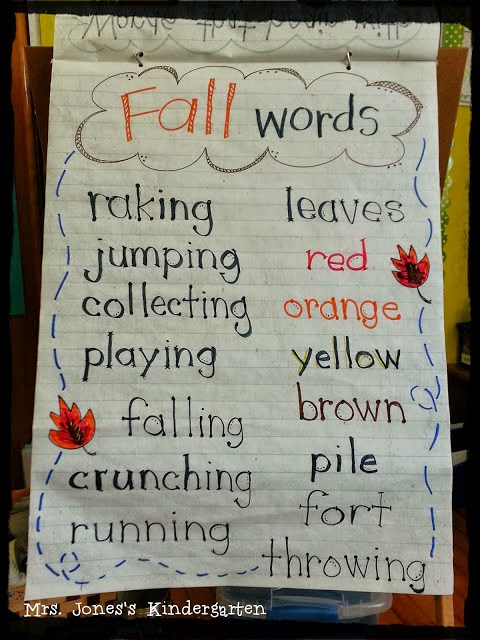 Fall words
raking leaves
jumping red
collecting orange
playing yellow
brown
falling
pile
crunching
fort
running
throwing
Mrs. Jones's Kindergarten